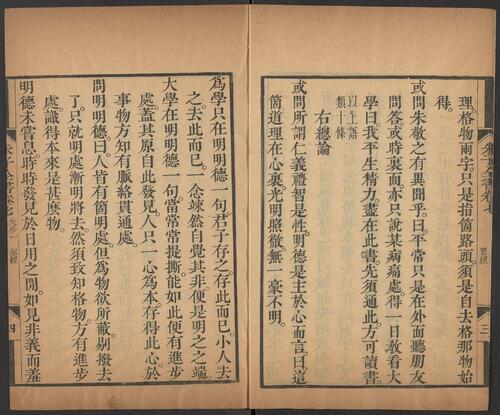 理格物兩字只是指箇路頭須是自去格那物始
得
或問朱敬之有異聞乎曰平常只是在外面聽朋友
問答或時裏面亦只說某病痛處得一日教看大
學曰我平生精力盡在此書先須通此方可讀書
以上語
類十條
右總論
或問所謂仁義禮智是性明德是主於心而言曰這
箇道理在心裏光明照徹無一豪不明
三
爲學只在明明德一句君子存之存此而已小人去
之去此而已一念竦然自覺其非便是明之之端
大學在明明德一句當常常提撕能如此便有進步
處蓋其原自此發見人只一心爲本存得此心於
事物方知有脈絡貫通處
問明明德曰人皆有箇明處但爲物欲所蔽剔撥去
了只就明處漸明將去然須致知格物方有進步
處識得本來是甚麽物
明德未嘗息時時發見於日用之閒如見非義而羞
四